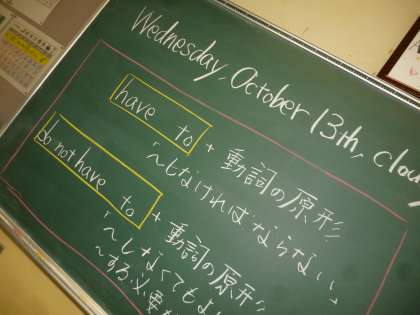 Wednesday, October 13th, clou
have to + 動詞の原形
「～しなければならない」
do not have to + 動詞の原形
「～しなくてもよ
～する必要